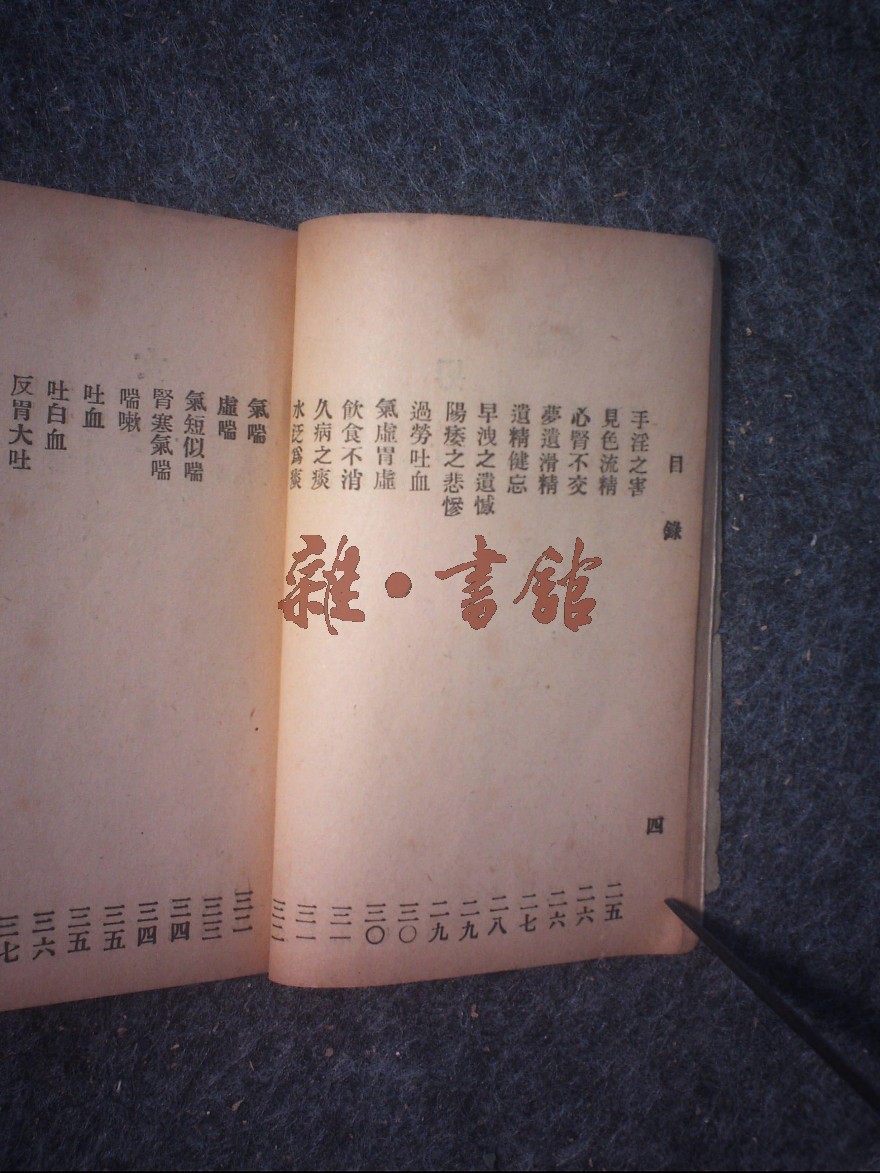 目錄 四
手淫之害 二五
見色流精 二六
心腎不交 二六
夢遺滑精 二七
遺精健忘 二八
早洩之遺憾 二九
陽痿之悲慘 二九
過勞吐血 三〇
氣虛胃虛 三〇
飲食不消 三一
久病之痰 三一
水泛爲痰 三二
氣喘 三二
虛喘 三三
氣短似喘 三四
腎寒氣喘 三四
喘嗽 三五
吐血 三五
吐白血 三六
反胃大吐 三七
雜·書館